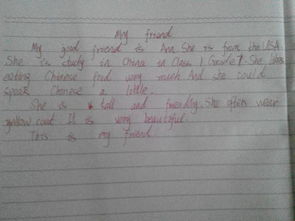 My friend
My good friend is Ana. She is from the USA.
She is study in China in Class 1 Grade 7. She likes
eating Chinese food very much. And she could
speak Chinese a little.
She is tall and friendly. She often wear
yellow coat. It is very beautiful.
This is my friend.